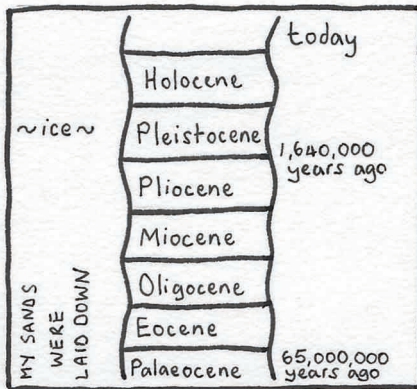 today
Holocene
~ice~
Pleistocene
1,640,000
years ago
Pliocene
Miocene
Oligocene
Eocene
Palaeocene
65,000,000
years ago
MY SANDS
WERE
LAID DOWN